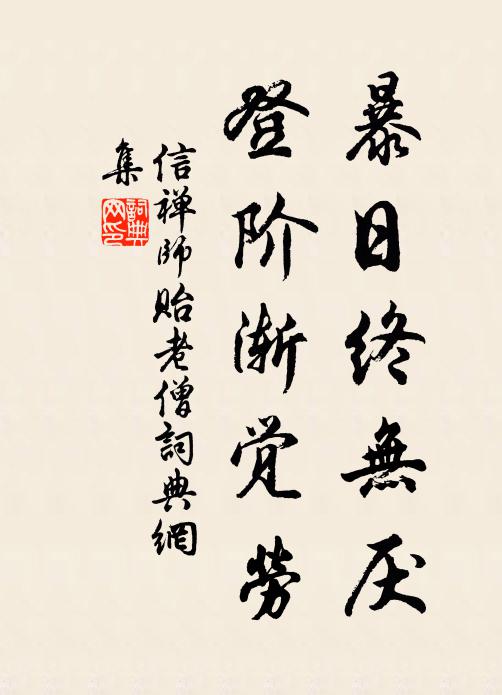 暴日终無厌
登阶渐觉勞
信禅師贻老僧詞典網
集
詞典
网印